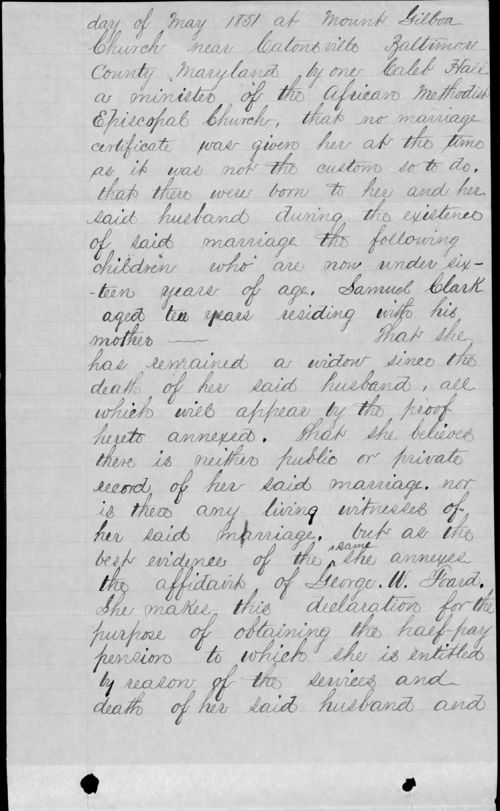 day of May 1851 at Mount Gilboa
Church near Catonsville Baltimore
County Maryland by one Caleb Hall
a minister of the African Methodist
Episcopal Church, that no marriage
certificate was given her at the time
as it was not the custom so to do.
that there were born to her and her
said husband during the existence
of said marriage the following
children who are now under six-
-teen years of age. Samuel Clark
aged ten years residing with his
mother —— That she
has remained a widow since the
death of her said husband, all
which will appear by the proof
hereto annexed. That she believes
there is neither public or private
record of her said marriage. nor
is there any living witnesses of
her said marriage, but as the
best evidence of the same she annexes
the affidavit of George. W. Foard.
She makes this declaration for the
purpose of obtaining the half-pay
pension to which she is entitled
by reason of the services and
death of her said husband and